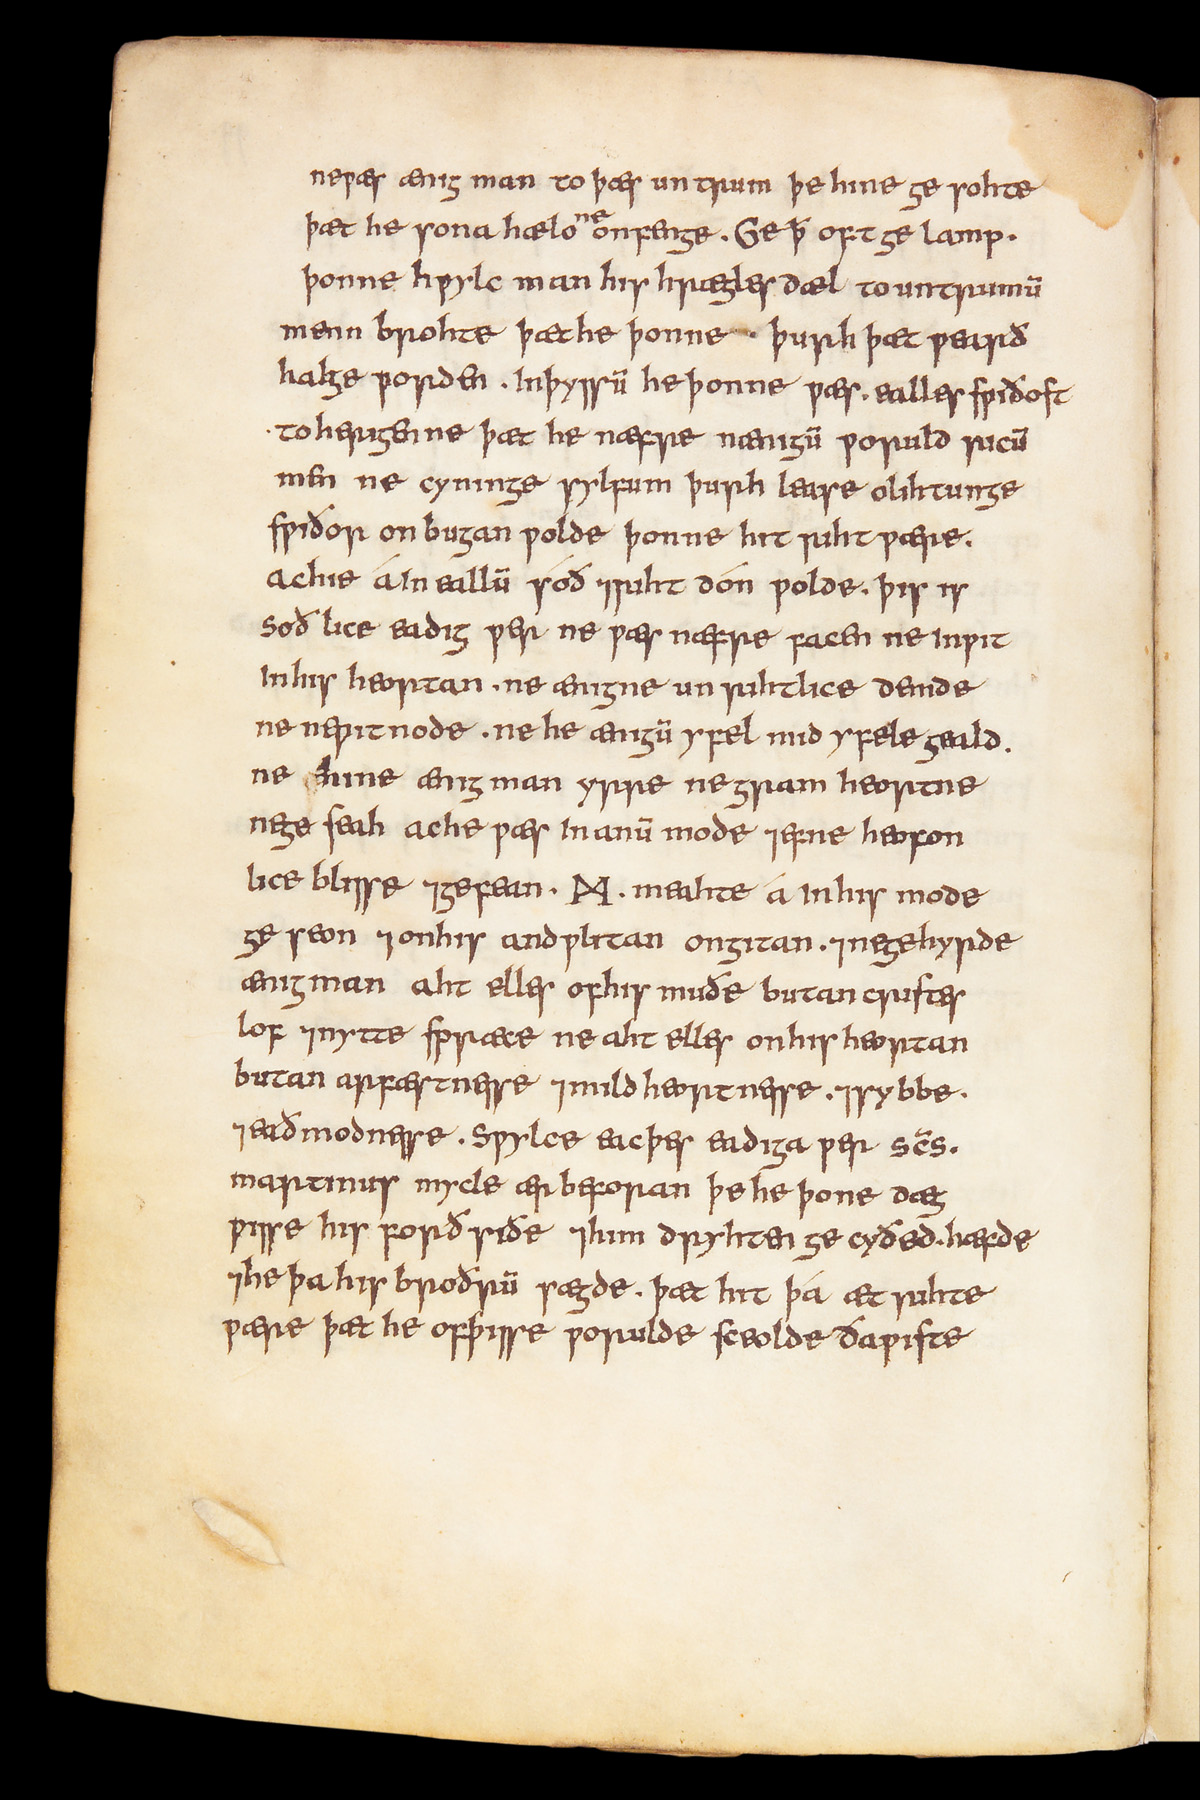 neƿæs ænig man to þæs untrum þe hine ge sohte
þæt he sona hælo ne onfenge. Ge ꝥ oft ge lamp.
þonne hƿylc man his hrægles dæl to untrumū
menn brohte þæt he þonne · þurh þæt ƿearð
halge ƿorden. In þyssū he þonne ƿæs. ealles sƿið oft
·to herigenne þæt he næfre nænigū ƿoruld ricū
men ne cyninge sylfum þurh lease olihtunge
sƿiðor onbugan ƿolde þonne hit riht ƿære.
ac he á in eallū sóð ⁊riht dón ƿolde. þis is
Soð lice eadig ƿer ne ƿæs næfre facen ne inƿit
in his heortan. ne ænigne unrihtlice demde
ne neƿitnode. ne he ænigū yfel mid yfele geald.
ne hine ænig man yrre ne gram heortne
nege seah ac he ƿæs in anū mode ⁊efne heofon
lice blisse ⁊gefean. M. meahte á in his mode
ge seon ⁊onhis andƿlitan ongitan. ⁊negehyrde
ænigman aht elles of his muðe butan cristes
lof ⁊nytte sƿræce ne aht elles onhis heortan
butan arfæstnesse ⁊mildheortnesse. ⁊sybbe.
⁊eaðmodnesse. Sƿylce eac þes eadiga ƿer Sc̄s.
martinus mycle ær beforan þe he þone dæg
ƿisse his forðsiðe ⁊him dryhten ge cyðed. hæfde
⁊he þa his broðrū sægde. þæt hit þá æt rihte
ƿære þæt he ofþisse ƿorulde sceolde ðaƿiste